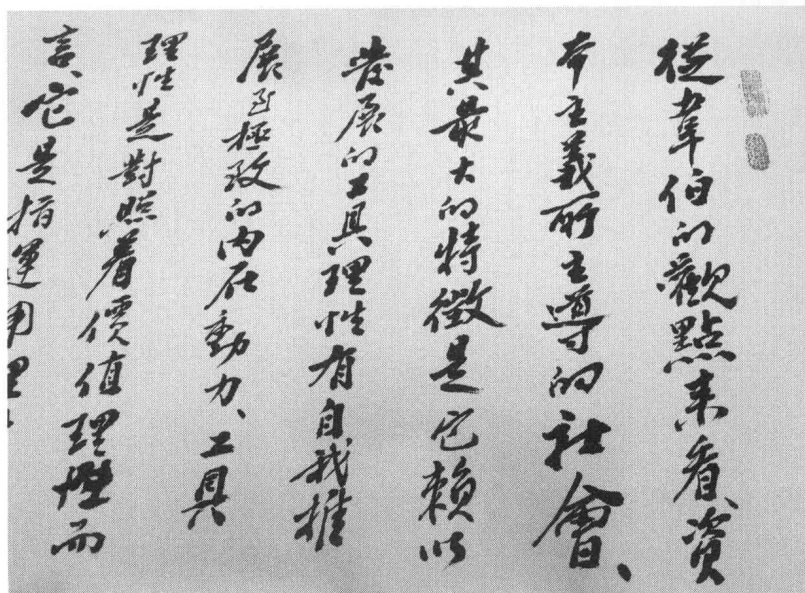 從韋伯的觀點來看、資
本主義所主導的社會、
其最大的特徵是它賴以
發展的工具理性有自我推
展至極致的內在動力、工具
理性是對照着價值理性而
言、它是指運用理